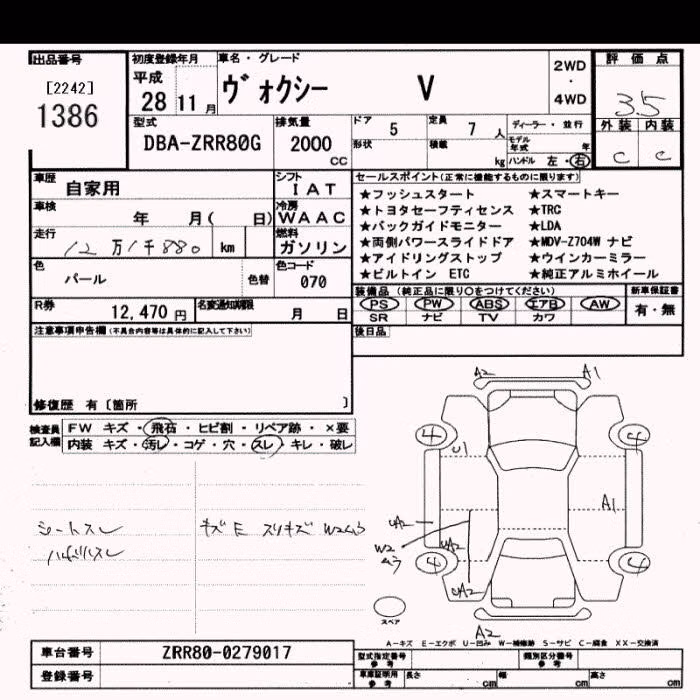 出品番号 初度登録年月 車名・グレード 2WD・4WD 評価点
[2242] 1386 平成 28 11月 ヴォクシー V 3.5
型式 排気量 ドア 5 定員 7人 ディーラー・並行 外装 内装
DBA-ZRR80G 2000 cc 形状 積載 kg モデル年式 年 ハンドル 左・右 C C
車歴 自家用 シフト IAT セールスポイント(正常に機能するものに限ります)
★フッシュスタート ★スマートキー
車検 年 月( 日) 冷房 WAAC ★トヨタセーフティセンス ★TRC
★バックガイドモニター ★LDA
走行 12万1千880 km 燃料 ガソリン ★両側パワースライドドア ★MDV-Z704W ナビ
★アイドリングストップ ★ウインカーミラー
色 パール 色替 色コード 070 ★ビルトイン ETC ★純正アルミホイール
装備品(純正品に限り○をつけてください) 新車保証書
R券 12,470円 名変通知期限 月 日 PS PW ABS エアB AW 有・無
SR ナビ TV カワ
注意事項申告欄(不具合内容等は具体的に記入して下さい) 後日品
修復歴 有〔箇所 〕
検査員記入欄 FW キズ・飛石・ヒビ割・リペア跡・×要
内装 キズ・汚レ・コゲ・穴・スレ・キレ・破レ
A2 A1
4 4
U1
A1
シートスレ キズE スリキズ W2ムラ UA2
W2 ムラ UA2
4 4
UA2
スペア
A2
A-キズ E-エクボ U-凹み W-補修跡 S-サビ C-腐食 XX-交換済
車台番号 ZRR80-0279017 型式指定番号 参考 類別区分番号 参考
登録番号 車庫証明用 参考 長さ cm 幅 cm 高さ cm